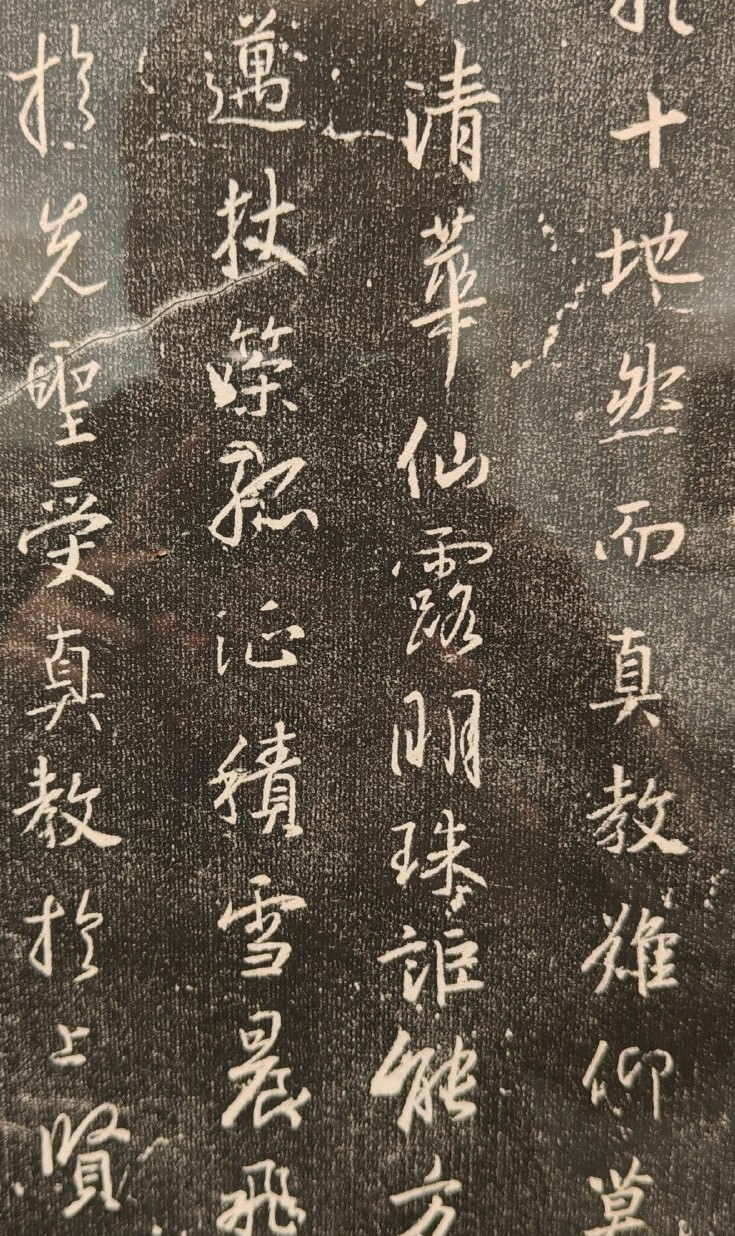 十地然而真教難仰莫
清華仙露明珠詎能方
邁杖策孤征積雪晨飛
於先聖受真教於上賢